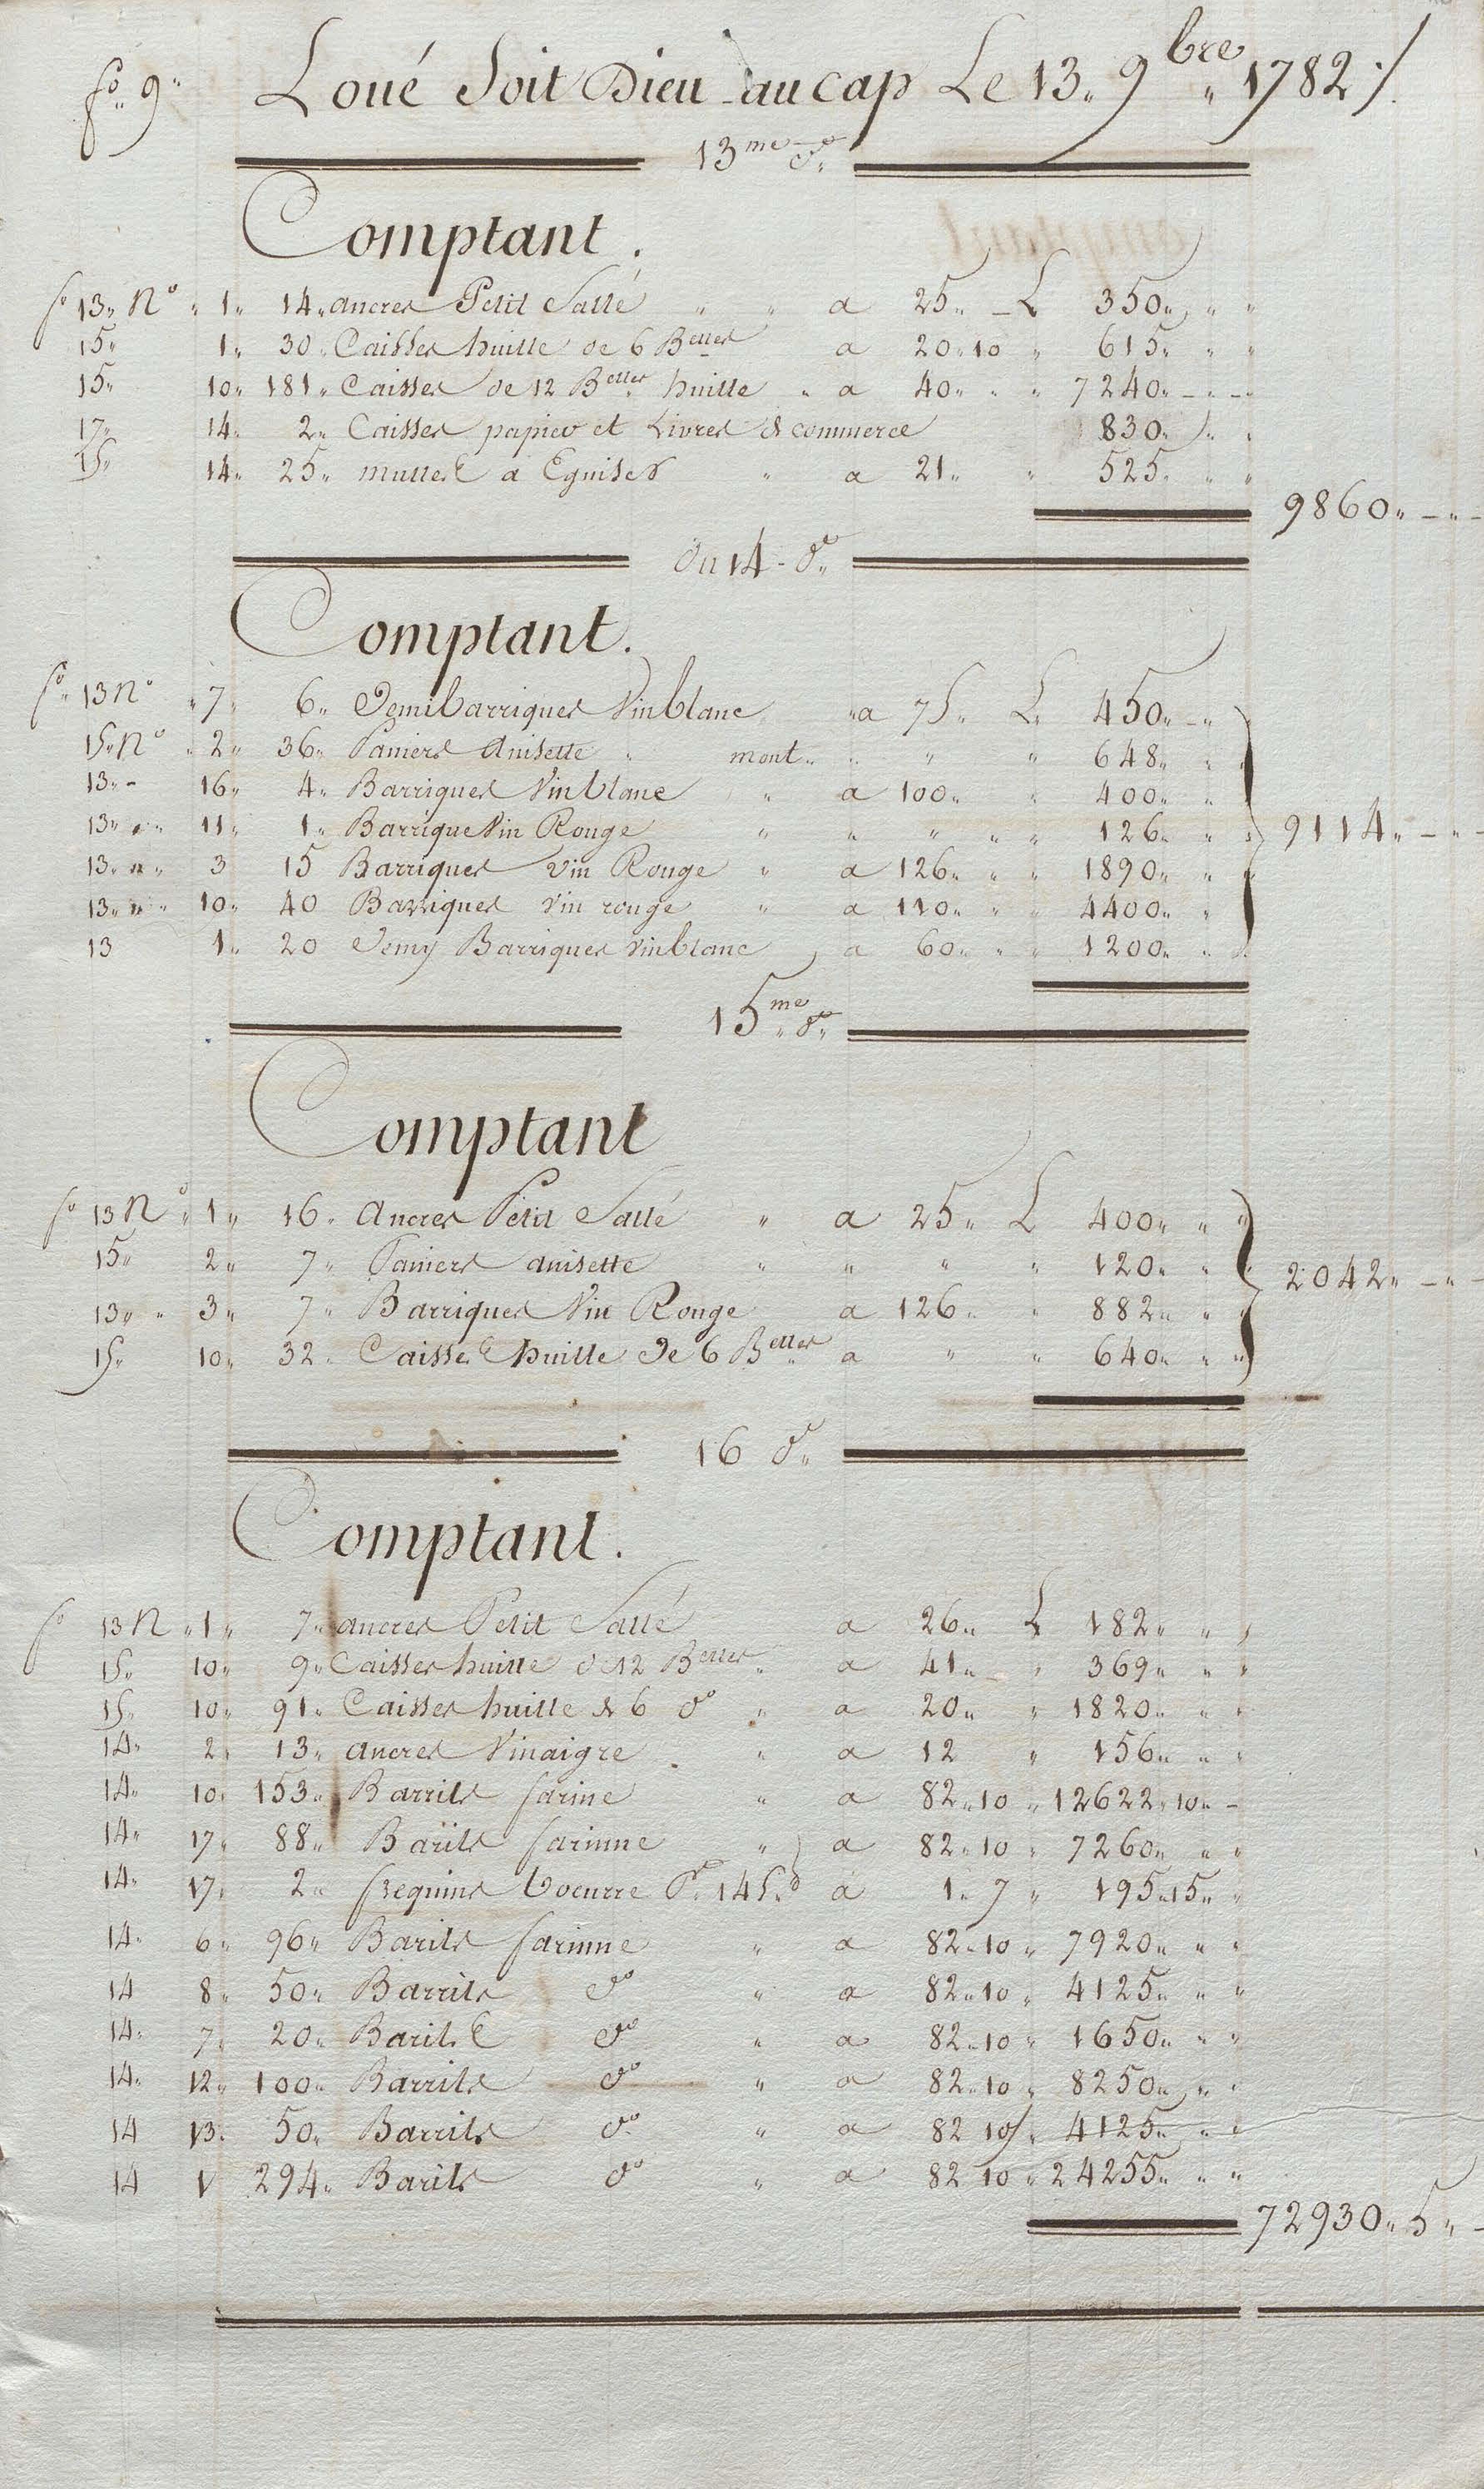 fo 9 Loué Soit Dieu au cap Le 13 9bre 1782 ./.
13me do
Comptant.
fo 13 No 1 14 ancres Petit Sallé a 25 L 350
15 1 30 Caisses huille de 6 Belles a 20 10 615
15 10 181 Caisses de 12 Belles huille a 40 7240
17 14 2 Caisses papier et Livres de commerce 830
15 14 25 mulles a Eguiser a 21 525
9860
Du 14 do
Comptant.
fo 13 No 7 6 Demi barriques Vin blanc a 75 L 450
15 No 2 36 Paniers Anisette mont. 648
13 16 4 Barriques Vin blanc a 100 400
13 11 1 Barrique Vin Rouge 126
9114
13 3 15 Barriques Vin Rouge a 126 1890
13 10 40 Barriques Vin rouge a 110 4400
13 1 20 Demy Barriques Vin blanc a 60 1200
15me do
Comptant
fo 13 No 1 16 Ancres Petit Sallé a 25 L 400
15 2 7 Paniers anisette 120
2042
13 3 7 Barriques Vin Rouge a 126 882
15 10 32 Caisses huille De 6 Belles a 640
16 do
Comptant.
fo 13 N 1 7 ancres Petit Sallé a 26 L 182
15 10 9 Caisses huille de 12 Belles a 41 369
15 10 91 Caisses huille de 6 do a 20 1820
14 2 13 ancres Vinaigre a 12 156
14 10 153 Barrils farine a 82 10 12622 10
14 17 88 Barils farinne a 82 10 7260
14 17 2 frequins boeurre Pt 145 a 1 7 195 15
14 6 96 Barils farinne a 82 10 7920
14 8 50 Barrils do a 82 10 4125
14 7 20 Barils do a 82 10 1650
14 12 100 Barrils do a 82 10 8250
14 13 50 Barrils do a 82 10 4125
14 1 294 Barils do a 82 10 24255
72930 5